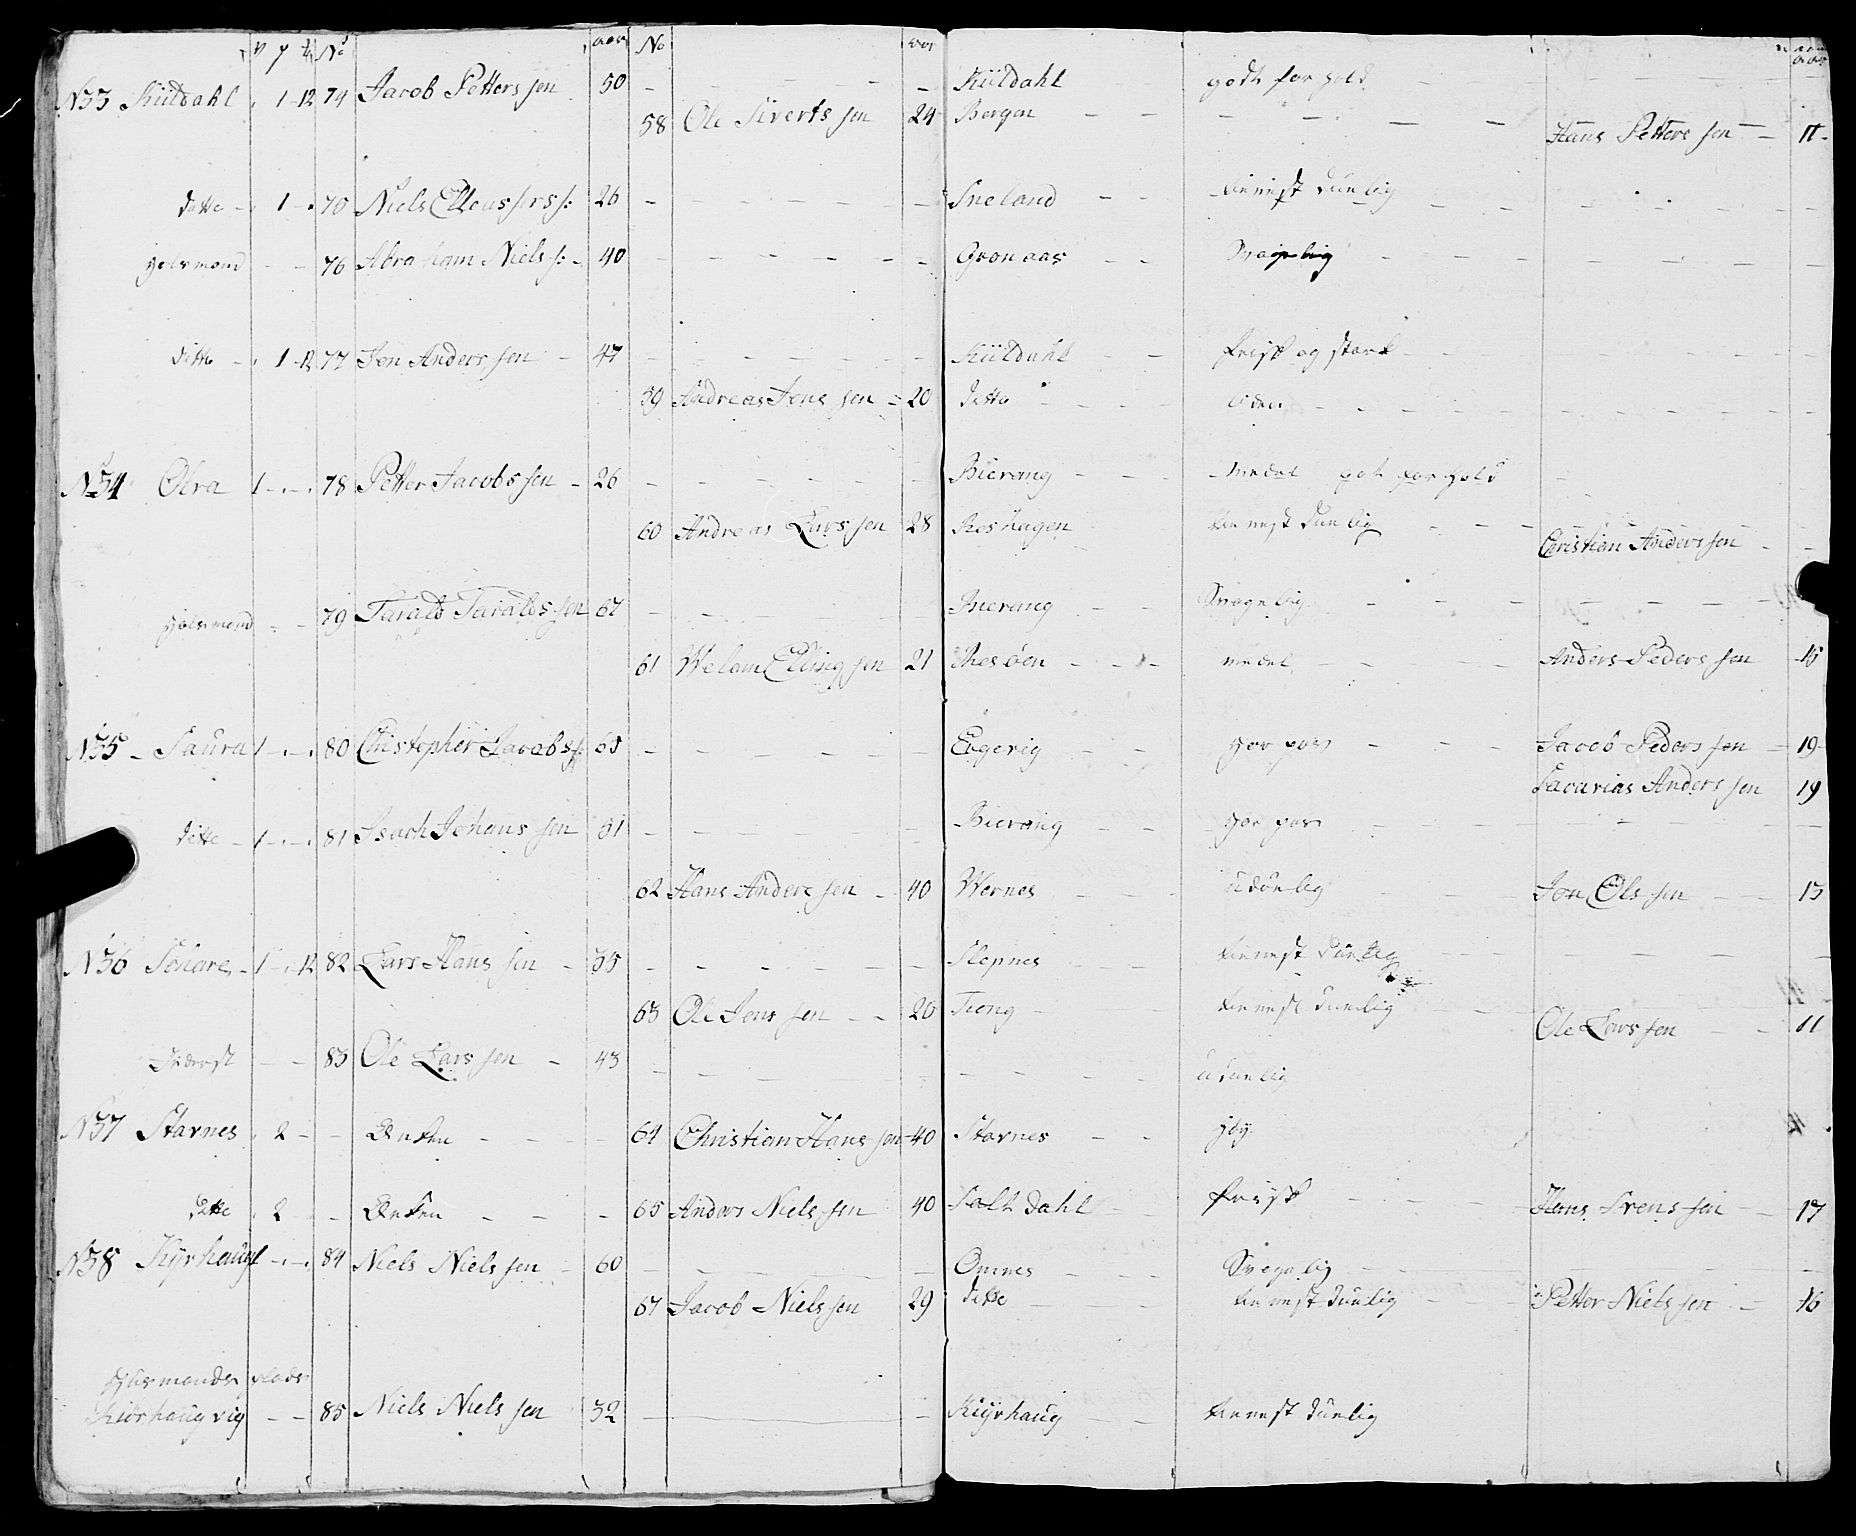 No aar No aar
N33 Küldahl 1 - 12 74 Jacob Petters sen 50 - Küldahl godt for hold
58 Ole Siverts sen 24 Bergen Hans Petters sen 11
ditto 1 - 70 Niels 26 Sneland tienest dünlig
76 Abraham Niels s: 40 Gronaas Svagelig
ditto 1 - 12 77 Jon Anders sen 47 Küldahl frisk og stark
59 Andreas Jons sen 20 ditto liden
N34 Olra 1 78 Petter Jacobs sen 26 Bierang medel got for hold
60 Andreas Lars sen 28 Reshagen tienest dünlig Christian Anders sen
79 Tarald Taralds sen 67 Inerang Svagelig
61 Welam Elling sen 21 Resøen medel Anders Peders sen 15
N35 Saura 1 80 Christopher Jacobs s: 65 Evgerig Jacob Peders sen 19
Sacarias Anders sen 19
ditto 1 81 Isach Johans sen 31 Bierang
62 Hans Anders sen 40 Wernes udünlig Jon Ols sen 13
N36 1 - 12 82 Lars Hans sen 35 Slepnes tienest dünlig
63 Ole Jons sen 20 Tiong tienest dünlig Ole Lars sen 11
83 Ole Lars sen 43 udünlig
N37 Starnes 2 Encken 64 Christian Hans sen 40 Starnes
ditto 2 Encken 65 Anders Niels sen 40 Salt dahl frisk Hans Srens sen 17
N38 Kyrhaug 1 84 Niels Niels sen 60 Omnes Svagelig
67 Jacob Niels sen 29 ditto tienest dünlig Petter Niels sen 16
Kiørhaug vig 85 Niels Niels sen 32 Kiyrhaug tienest dünlig